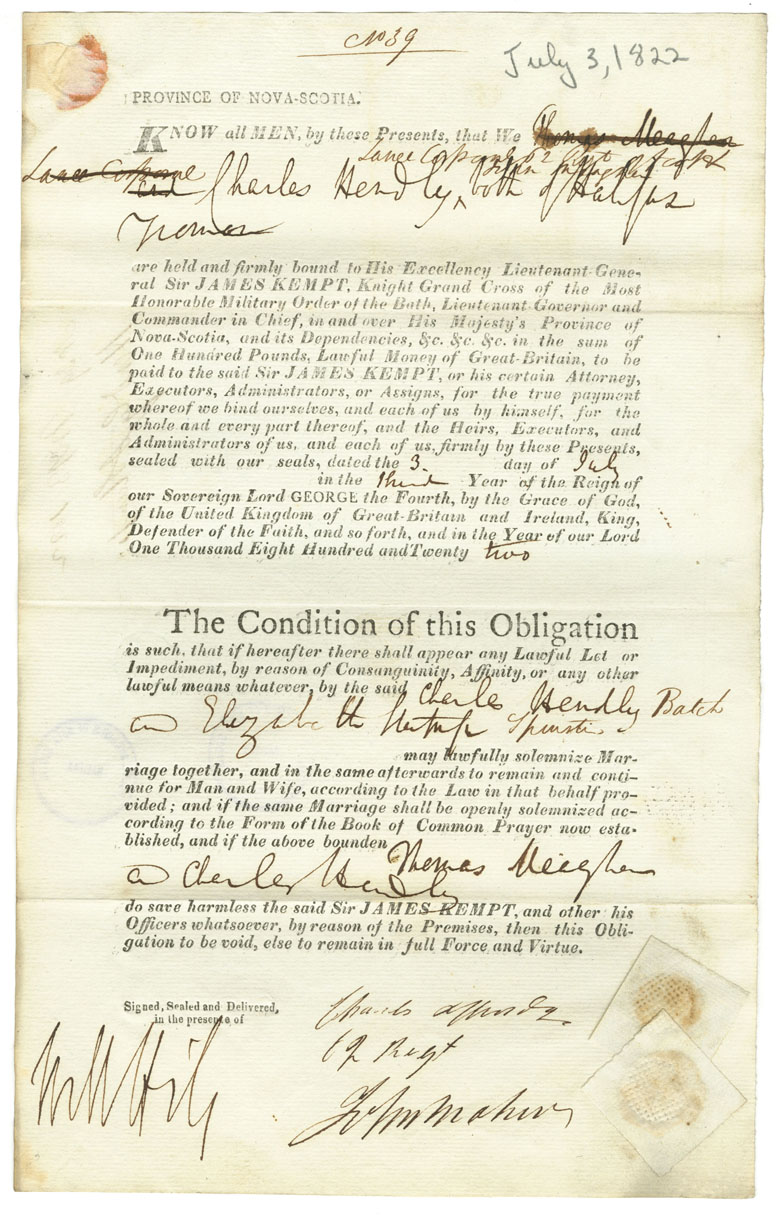 No 39
July 3, 1822
PROVINCE OF NOVA-SCOTIA.
KNOW all MEN, by these Presents, that We Thomas Meagher
Lance Corporal 62 Regt
Lance Corporal
and Charles Hendly, both of Halifax
are held and firmly bound to His Excellency Lieutenant-Gene-
ral Sir JAMES KEMPT, Knight Grand Cross of the Most
Honorable Military Order of the Bath, Lieutenant-Governor and
Commander in Chief, in and over His Majesty's Province of
Nova-Scotia, and its Dependencies, &c. &c. &c. in the sum of
One Hundred Pounds, Lawful Money of Great-Britain, to be
paid to the said Sir JAMES KEMPT, or his certain Attorney,
Executors, Administrators, or Assigns, for the true payment
whereof we bind ourselves, and each of us by himself, for the
whole and every part thereof, and the Heirs, Executors, and
Administrators of us, and each of us, firmly by these Presents,
sealed with our seals, dated the 3 day of July
in the third Year of the Reign of
our Sovereign Lord GEORGE the Fourth, by the Grace of God,
of the United Kingdom of Great-Britain and Ireland, King,
Defender of the Faith, and so forth, and in the Year of our Lord
One Thousand Eight Hundred and Twenty two
The Condition of this Obligation
is such, that if hereafter there shall appear any Lawful Let or
Impediment, by reason of Consanguinity, Affinity, or any other
lawful means whatever, by the said Charles Hendly Batch
and Elizabeth Spinster
may lawfully solemnize Mar-
riage together, and in the same afterwards to remain and conti-
nue for Man and Wife, according to the Law in that behalf pro-
vided; and if the same Marriage shall be openly solemnized ac-
cording to the Form of the Book of Common Prayer now esta-
blished, and if the above bounden Thomas Meagher
and Charles Hendly
do save harmless the said Sir JAMES KEMPT, and other his
Officers whatsoever, by reason of the Premises, then this Obli-
gation to be void, else to remain in full Force and Virtue.
Signed, Sealed and Delivered,
in the presence of
Charles
62 Regt
John